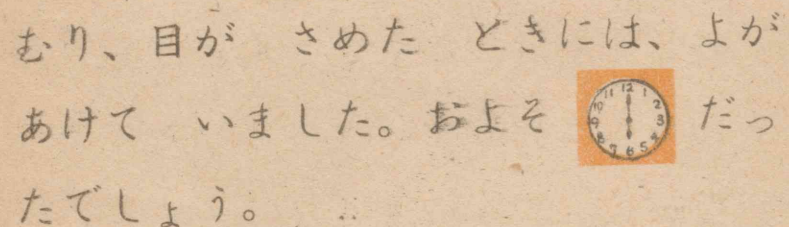 むり、目が　さめた　ときには、よが
あけて　いました。およそ 11 12 1 2 3 4 5 6 7 8 9 10 だっ
たでしょう。